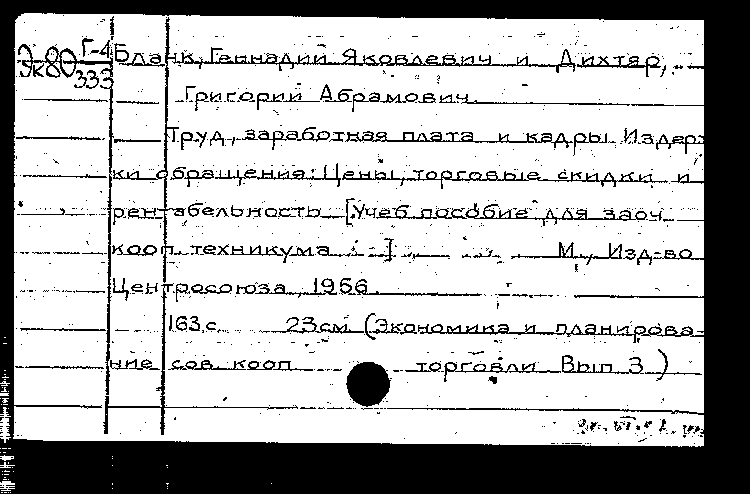 Эк80 Г-4
333
Бланк, Геннадий Яковлевич и Дихтяр,
Григорий Абрамович.
Труд, заработная плата и кадры Издерж-
ки обращения: Цены, торговые скидки и
рентабельность [Учеб пособие для заоч
кооп техникума ] М., Изд-во
Центросоюза, 1956.
163 с 23 см (Экономика и планирова-
ние сов. кооп торговли Вып 3)